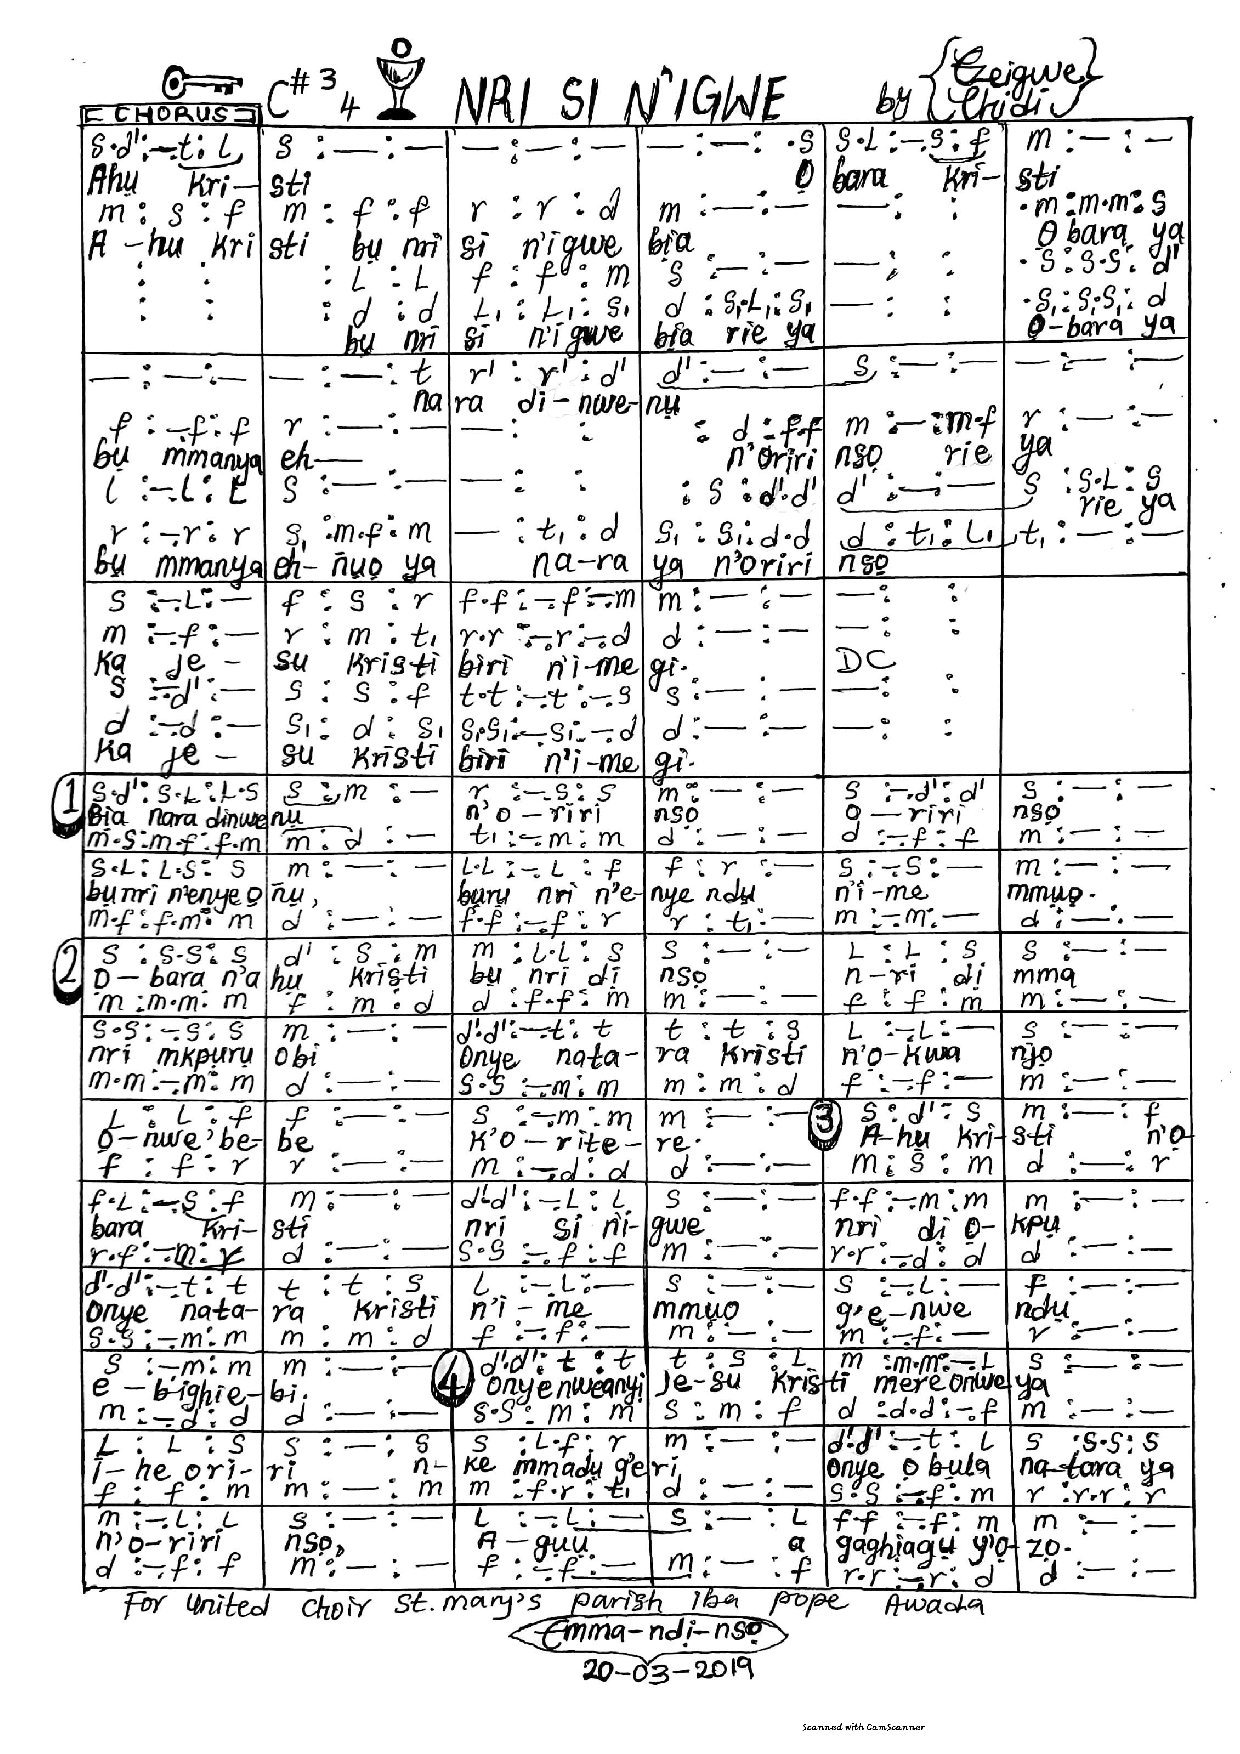 C# 3/4 NRI SI N'IGWE by {Ezeigwe Chidi}
CHORUS
s.d':-.t:l, | s :—:— | —:—:— | —:—:.s | s.l:-.s:f | m :—:—
Ahụ Kri- | sti | | Ọ | bara Kri- | sti
m : s : f | m : f : f | r : r : d | m :—:— | —: : | .m:m.m:s
A-hu Kri | sti bụ nri | si n'igwe | bia | | Ọbara ya
: : | : l : l | f : f : m | s :—:— | —: : | .s:s.s:d'
: : | : d : d | l₁ : l₁ : s₁ | d : s₁.l₁:s₁ | —: : | .s₁:s₁.s₁:d
bụ nri | si n'igwe | bia rie ya | | Ọ-bara ya
—:—:— | —:—:t | r' : r' : d' | d' :—:— | s :—:— | —:—:—
na | ra di-nwe- | nụ
f :-.f:f | r :—:— | —: : | : d :f.f | m :—:m.f | r :—:—
bụ mmanya | eh— | | n'oriri | nsọ rie | ya
l :-.l:l | s :—:— | —: : | : s :d'.d' | d' :—:— | s :s.l:s
rie ya
r :-.r:r | s₁ :m.f:m | — :t₁ :d | s₁ :s₁:d.d | d :t₁:l₁ | t₁ :—:—
bụ mmanya | eh-ñụọ ya | na-ra | ya n'oriri | nsọ
s :-.l:— | f : s : r | f.f:-.f:-.m | m :—:— | —: :
m :-.f:— | r : m : t₁ | r.r:-.r:-.d | d :—:— | —: :
Ka Je- | su Kristi | biri n'i-me | gi. | DC
s :-.d':— | s : s : f | t.t:-.t:-.s | s :—:— | —: :
d :-.d:— | s₁ : d : s₁ | s₁.s₁:-.s₁:-.d | d :—:— | —: :
Ka Je- | su Kristi | biri n'i-me | gi.
1 s.d':s.l:l.s | s :m :— | r :-.s:s | m :—:— | s :-.d':d' | s :—:—
Bia nara dinwe | nụ | n'o-riri | nsọ | o-riri | nsọ
m.s:m.f:f.m | m :d :— | t₁ :-.m:m | d :—:— | d :-.f:f | m :—:—
s.l:l.s:s | m :—:— | l.l:-.l:f | f : r :— | s :-.s:— | m :—:—
bụ nri n'enye ọ | ñụ, | buru nri n'e- | nye ndụ | n'i-me | mmụọ.
m.f:f.m:m | d :—:— | f.f:-.f:r | r : t₁:— | m :-.m:— | d :—:—
2 s :s.s:s | d' : s : m | m :l.l:s | s :—:— | l : l : s | s :—:—
Ọ-bara n'a | hụ Kristi | bụ nri di | nsọ | n-ri di | mma
m :m.m:m | f : m : d | d :f.f:m | m :—:— | f : f : m | m :—:—
s.s:-.s:s | m :—:— | d'.d':-.t:t | t : t : s | l :-.l:— | s :—:—
nri mkpụrụ | obi | Onye nata- | ra Kristi | n'o-kwa | njọ
m.m:-.m:m | d :—:— | s.s:-.m:m | m : m : d | f :-.f:— | m :—:—
l : l : f | f :—:— | s :-.m:m | m :—:— | 3 s : d' : s | m :—:f
O-nwe be- | be | K'o-rite- | re. | A-hụ Kri- | sti n'ọ-
f : f : r | r :—:— | m :-.d:d | d :—:— | m : s : m | d :—:r
f.l:-.s:f | m :—:— | d'.d':-.l:l | s :—:— | f.f:-.m:m | m :—:—
bara Kri- | sti | nri si ni- | gwe | nri dị ọ- | kpụ
r.f:-.m:r | d :—:— | s.s:-.f:f | m :—:— | r.r:-.d:d | d :—:—
d'.d':-.t:t | t : t : s | l :-.l:— | s :—:— | s :-.l:— | f :—:—
Onye nata- | ra Kristi | n'i-me | mmụọ | g'e-nwe | ndụ
s.s:-.m:m | m : m : d | f :-.f:— | m :—:— | m :-.f:— | r :—:—
s :-.m:m | m :—:— | 4 d'.d':t :t | t : s : l | m :m.m:-.l | s :—:—
e-bighie- | bi. | onyenweanyi | Je-su Kris | ti mere onwe | ya
m :-.d:d | d :—:— | s.s:m :m | s : m : f | d :d.d:-.f | m :—:—
l : l : s | s :—:s | s :l.f:r | m :—:— | d'.d':-.t:l | s :s.s:s
I-he ori- | ri n- | ke mmadụ g'e | ri, | onye ọ bụla | na-tara ya
f : f : m | m :—:m | m :f.r:t₁ | d :—:— | s.s:-.f:m | r :r.r:r
m :-.l:l | s :—:— | l :-.l:— | s :—:l | f.f:-.f:m | m :—:—
n'o-riri | nsọ, | A-gụụ | a | gaghịagụ y'ọ- | zọ.
d :-.f:f | m :—:— | f :-.f:— | m :—:f | r.r:-.r:d | d :—:—
For United Choir St. Mary's Parish Iba pope Awada
Emma-ndi-nsọ
20-03-2019
Scanned with CamScanner